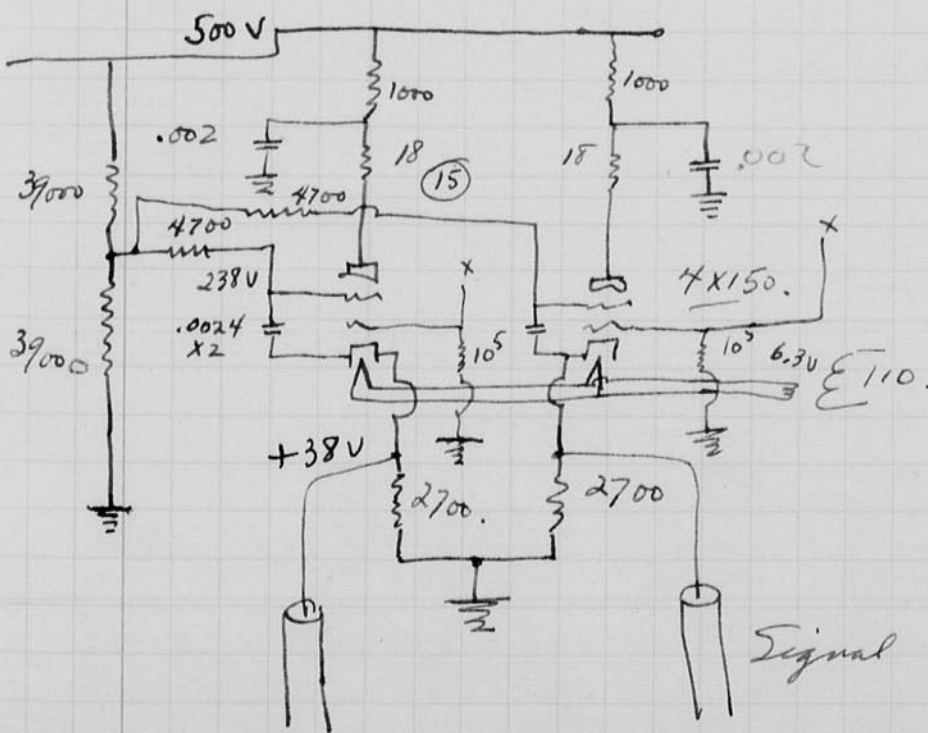 500 V
1000
1000
.002
18
15
18
.002
39000
4700
4700
238V
x
x
4X150.
.0024
X2
39000
10⁵
10⁵
6.3V
110.
+38V
2700.
2700
Signal